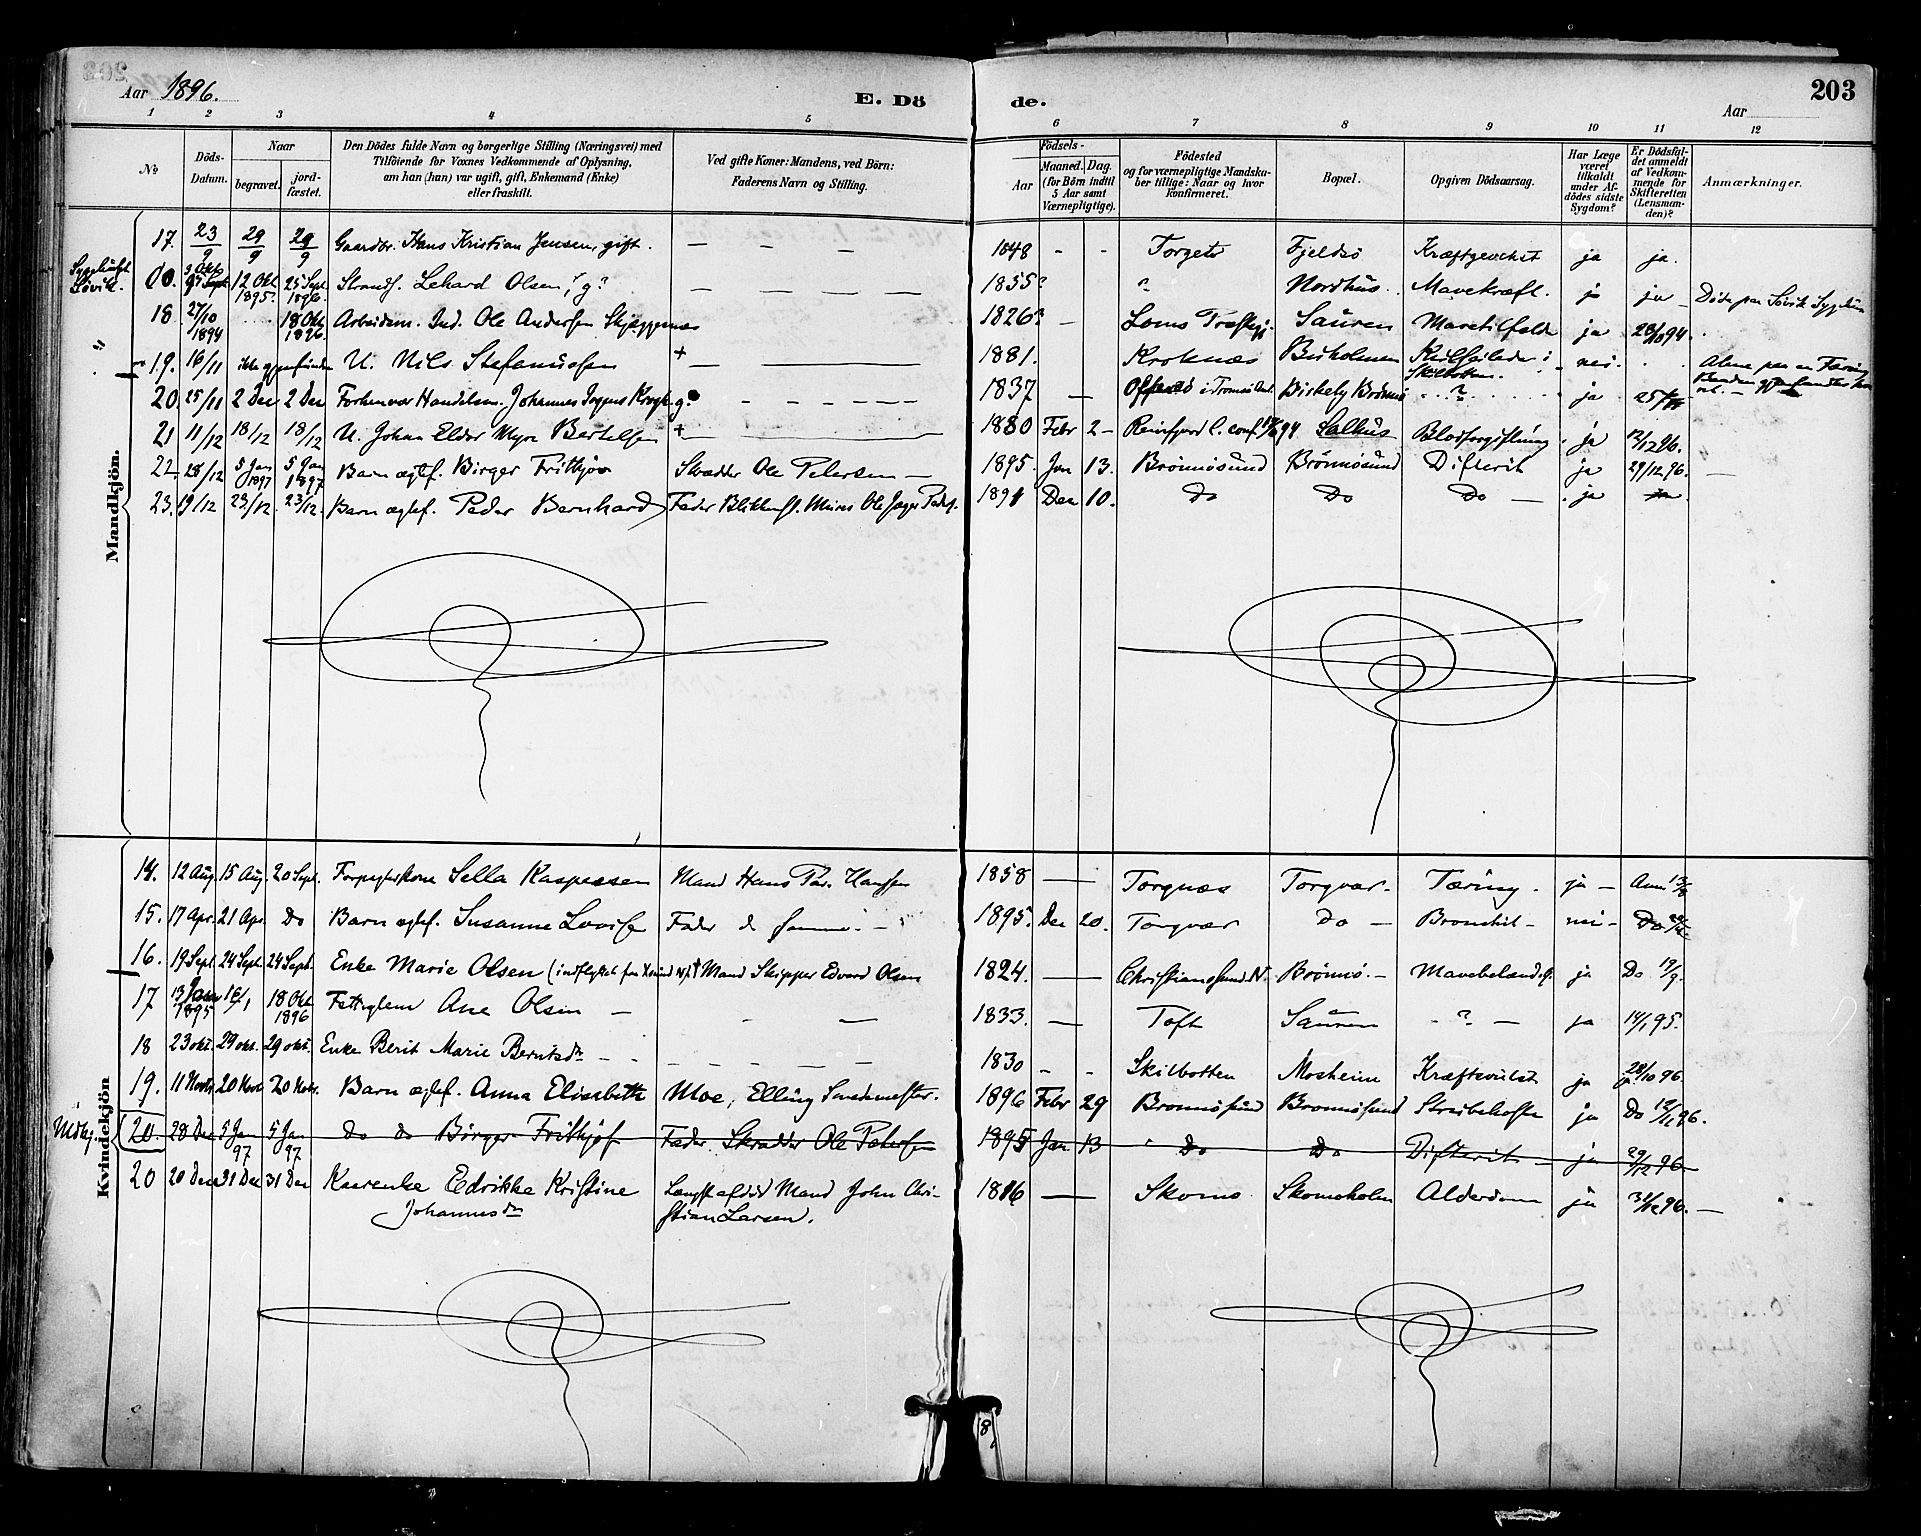 203
Aar 1896.
E. Dö
de.
Aar
1 2 3 4 5 6 7 8 9 10 11 12
No
Döds-
Datum.
Naar
begravet.
jord-
fæstet.
Den Dödes fulde Navn og borgerlige Stilling (Næringsvei) med
Tilföiende for Voxnes Vedkommende af Oplysning,
om han (hun) var ugift, gift, Enkemand (Enke)
eller fraskilt.
Ved gifte Koner: Mandens, ved Börn:
Faderens Navn og Stilling.
Födsels-
Aar
Maaned. Dag.
(for Börn indtil
5 Aar samt
Værnepligtige).
Födested
og for værnepligtige Mandska-
ber tillige: Naar og hvor
konfirmeret.
Bopæl.
Opgiven Dödsaarsag.
Har Læge
været
tilkaldt
under Af-
dödes sidste
Sygdom?
Er Dödsfal-
det anmeldt
af Vedkom-
mende for
Skifteretten
(Lensman-
den)?
Anmærkninger.
Mandkjön.
17. 23/9 29/9 29/9 Gaardbr. Hans Kristian Jensen, gift. — — — — — 1848 - - Torget Fjeldsö Kræftsvulst ja ja.
Sygehuset Søvik. 00. 12 Okt 1895. 25 Sept. 1896. Strands. Lehard Olsen, g? — — — — 1855? " Nordhus. Mavekræft. ja ja — Döde paa Søvik Sygehus
18 27/10 1894 ... 18 Okt 1896. Arbeidsm. Ind. Ole Andersen Skjæggenes 1826? — Loms Præstegj. Sauren Mavetilfælde ja 28/10 94.
19. 16/11 ikke gjenfunden U. Nils Stefanussen + — 1881. Kroknæs Buholmen Skilbotten. nei. Alene paa en Færing
20. 25/11 2 Dec 2 Dec Forhenvær. Handelsm. Johannes Krogh g. — — — — 1837 — i Tromsö Birkely Brönnö . . ? . . . ja
21 11/12 18/12 18/12 U. Johan Eldor Myre Bertelsen + — 1880 Febr 2 — Reinfjord l. conf. 94 Salhus Blodforgiftning ja 12/12 96.
22. 28/12 5 Jan 1897 5 Jan 1897 Barn ægtef. Birger Frithjov Skrædder Ole Petersen — 1895. Jan 13. Brönnösund Brönnösund Difterit ja 29/12 96. —
23. 19/12 23/12. 23/12. Barn ægtef. Peder Bernhard Fader Ole 1891 Dec 10. Do Do Do — ja ja
Kvindekjön
14. 12 Aug. 15 Aug. 20 Sept. Forpagterkone Sella Kaspersen Mand Hans Ped. Hansen 1858 — Torgnæs Torgvær. Tæring. ja — Anm
15. 17 Apr. 21 Apr. Do Barn ægtef. Susanne Lovise Fader 1895. Dec 20. Torgvær Do — Bronchit — nei —
16. 19 Sept. 24 Sept. 24 Sept. Enke Marie Olsen (indflyttet fra Xsund N) † Mand Skipper Edvard Olsen 1824. — Christianssund N. Brönnö. — ja Do 19/9.
17 13 Janr 1895 16/1 18 Okt 1896 Fattiglem Ane Olsen — - — 1833. — Toft Sauren - ? — ja 14/1 95.
18 23 okt. 29 okt. 29 okt. Enke Berit Marie Berntsdr — - — — — 1830 - - Skilbotten Mosheim Kræftsvulst ja 28/10 96.
19. 11 Novbr 20 Novbr 20 Novbr. Barn ægtef. Anna Elisabeth Moe, Elling Smedemester. 1896 Febr 29 Brönnösund Brönnösund Strubehoste ja Do 12/11 96.
20. 28 Dec 5 Jan 97 5 Jan 97 Do do Birger Frithjof Fader Skrædder Ole Petersen 1895 Jan 13 Do Do Difterit — ja 29/12 96 —
20 20 Dec 31 Dec 31 Dec Kaarenke Edrikke Kristine Længst afdöd Mand John Chri- 1816 — Skomo Skomoholm Alderdom ja 31/12 96. —
Johannesdr stian Larsen.